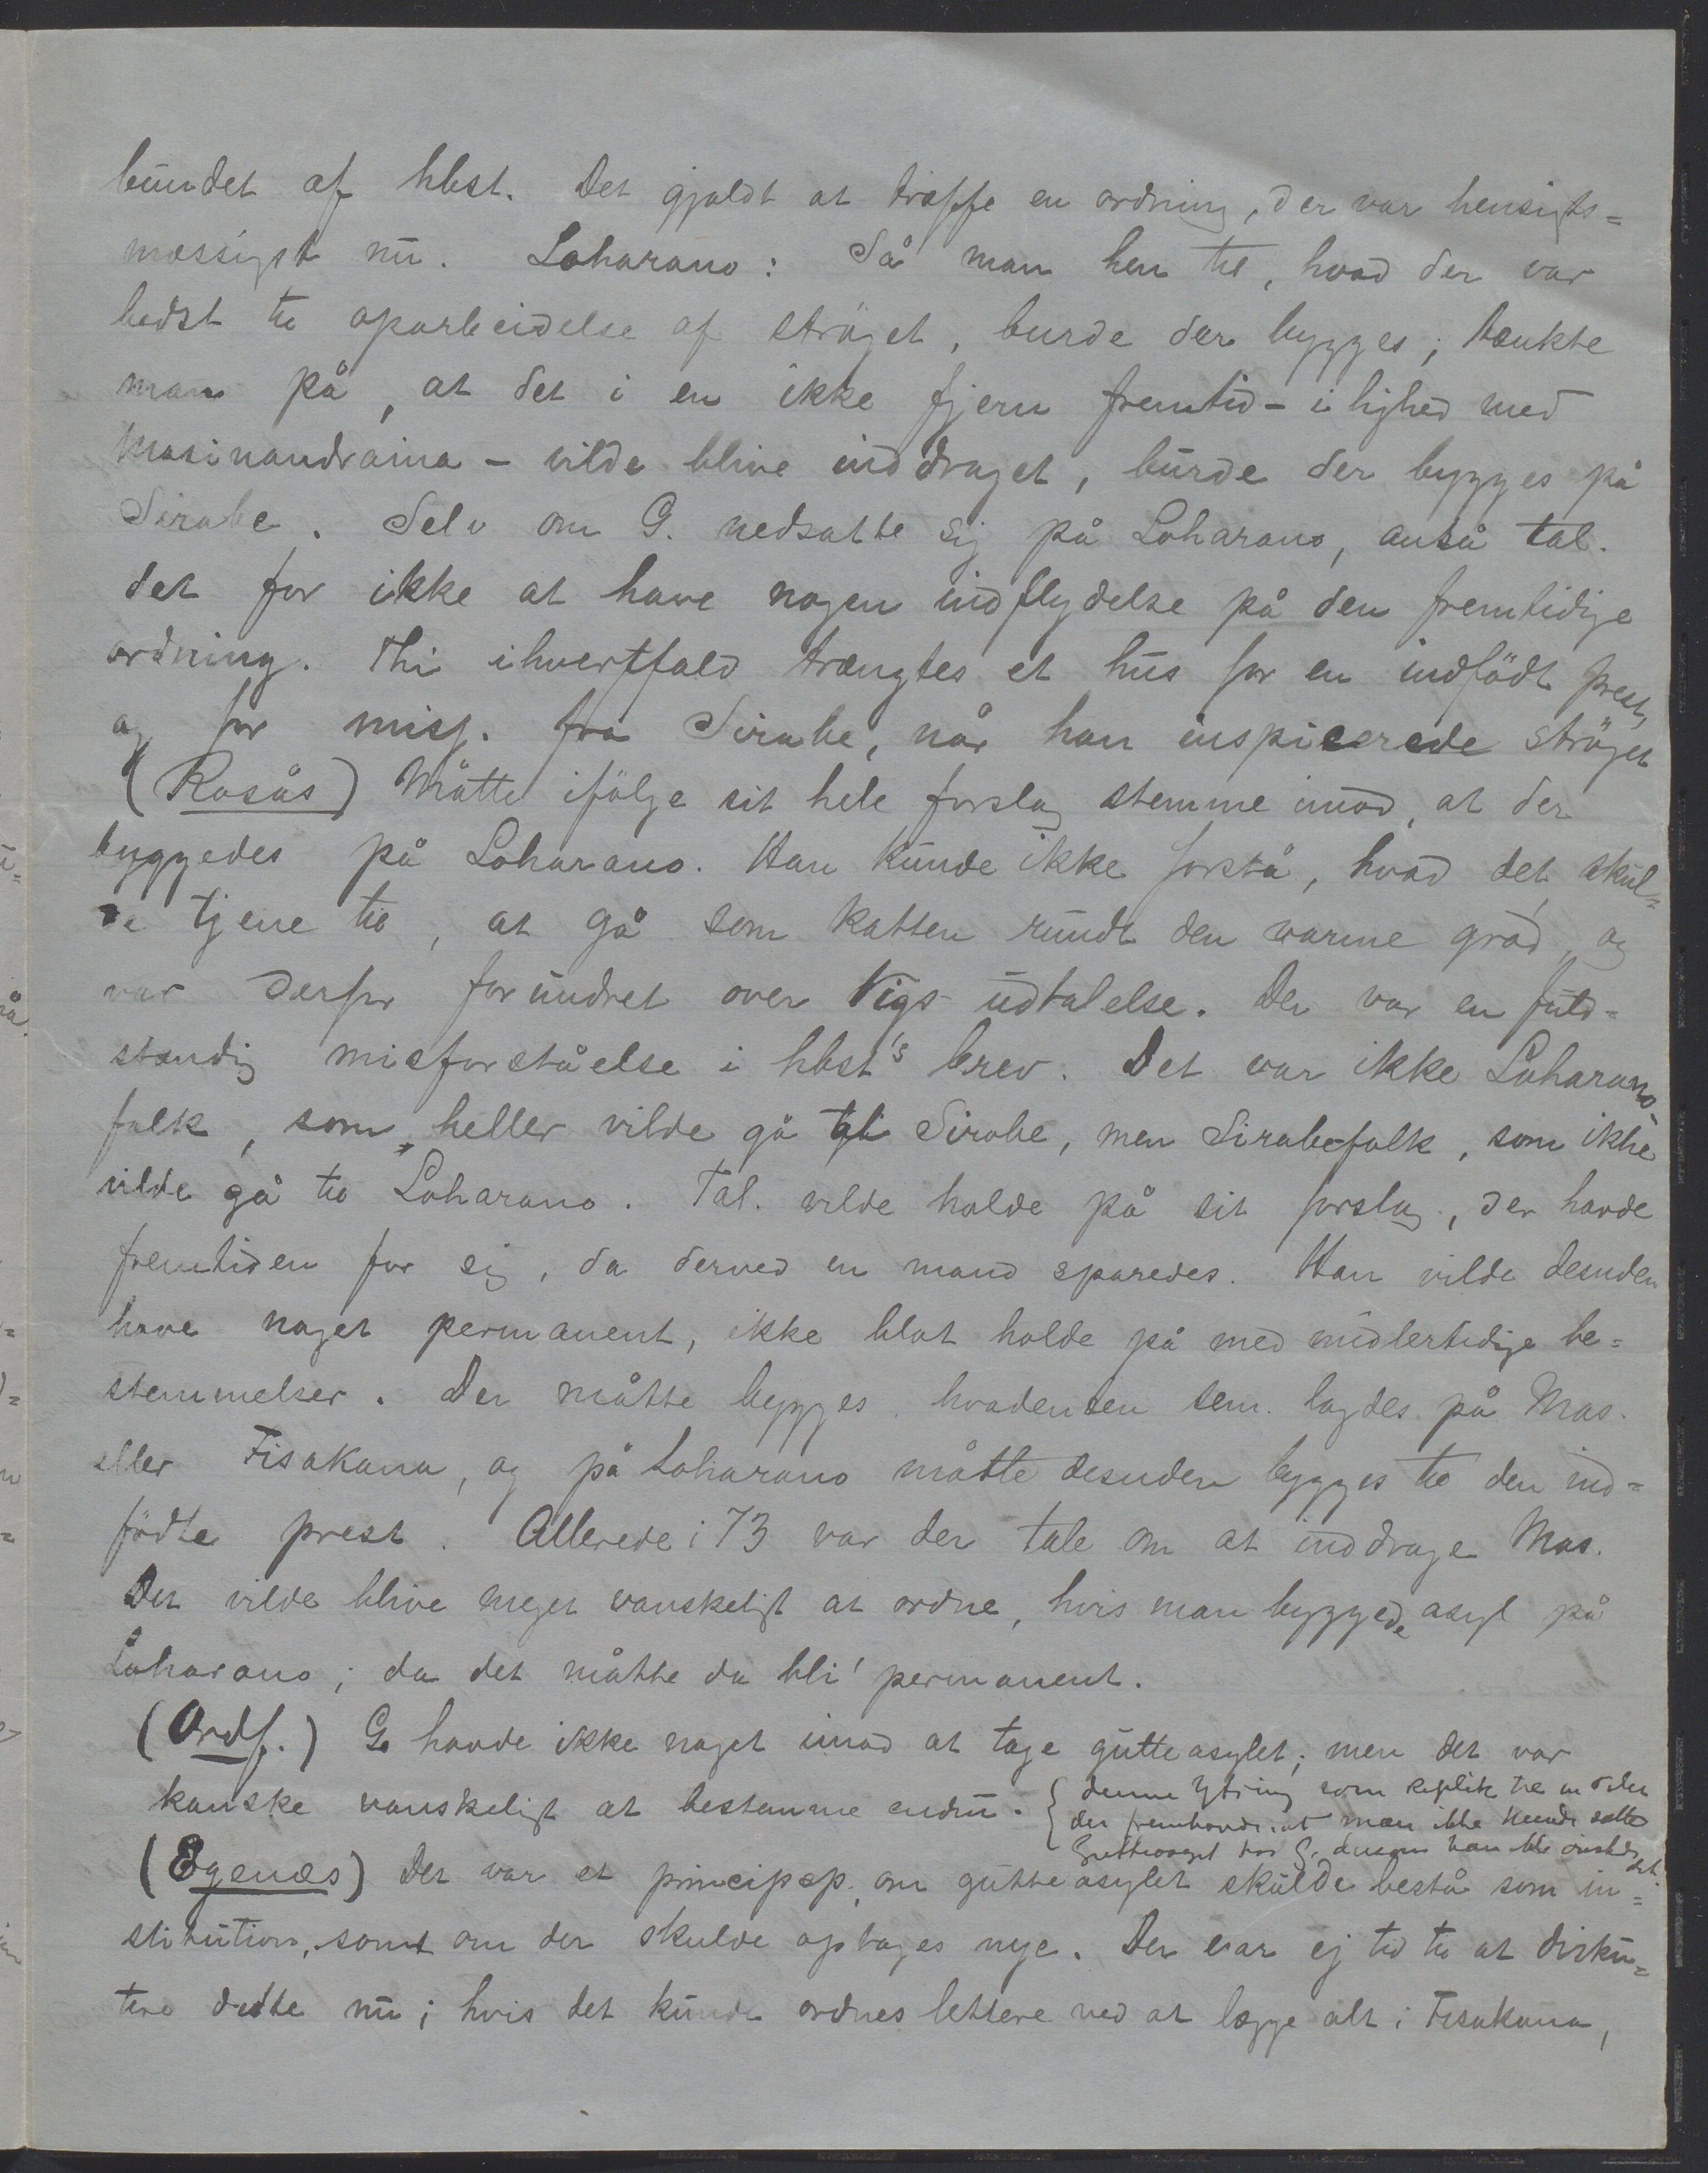 bundet af hbst. Det gjaldt at træffe en ordning, der var hensigts=
mæssigst nu. Loharano: Så man hen til, hvad der var
bedst til oparbeidelse af strøget, burde der bygges; tænkte
man på, at det i en ikke fjern fremtid - i lighed med
Masinandraina - vilde blive inddraget, burde der bygges på
Sirabe. Selv om G. nedsatte sig på Loharano, anså tal.
det for ikke at have nogen indflydelse på den fremtidige
ordning. Thi ihvertfald trængtes et hus for en indfödt prest,
og for miss. fra Sirabe, når han inspicerede ströget
(Rosås) Måtte ifölge sit hele forslag stemme imod, at der
byggedes på Loharano. Han kunde ikke forstå, hvad det skul=
de tjene til, at gå som katten rundt den varme gröd, og
var derfor forundret over Vigs udtalelse. Der var en fuld=
stændig misforståelse i hbst's brev. Det var ikke Loharano-
folk, som heller vilde gå til Sirabe, men Sirabefolk, som ikke
vilde gå til Loharano. Tal. vilde holde på sit forslag, der havde
fremtiden for sig, da derved en mand sparedes. Han vilde desuden
have noget permanent, ikke blot holde på med midlertidige be=
stemmelser. Der måtte bygges hvadenten sem. lagdes på Mas.
eller Fisakana, og på Loharano måtte desuden bygges til den ind=
födte prest. Allerede i 73 var der tale om at inddrage Mas.
Det vilde blive meget vanskeligt at ordne, hvis man byggede asyl på
Loharano; da det måtte da bli' permanent.
(Ordf.) G. havde ikke noget imod at tage gutteasylet; men det var
kanske vanskeligt at bestemme endnu. { denne ytring som replik til
der fremhævde at man ikke kunde sætte
Gutteasylet hos G. dersom han ikke önskede det.
(Egenæs) Det var et principsp. om gutteasylet skulde bestå som in=
stitution, samt om der skulde optages nye. Der var ej tid til at disku=
tere dette nu; hvis det kunde ordnes lettere ved at lægge alt i Fisakana,